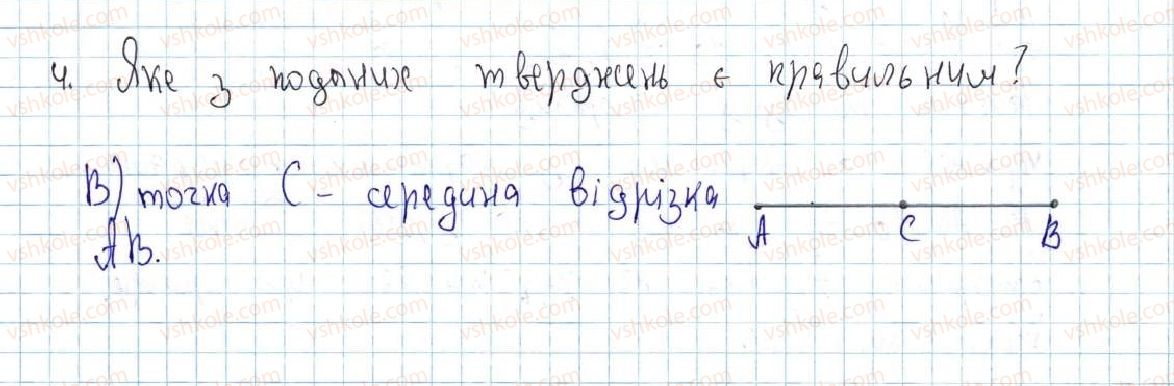 4. Яке з поданих тверджень є правильним?
В) точка С - середина відрізка
АВ.
А С В
vshkole.com